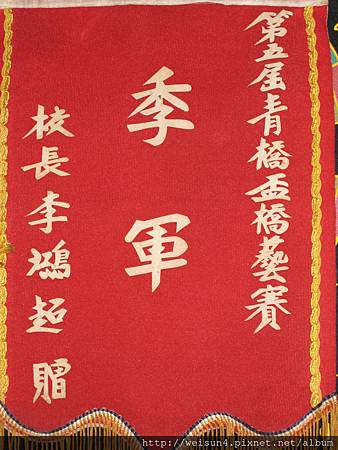 第五屆青橋盃橋藝賽
季軍
校長李鴻超贈
http://weisun4.pixnet.net/album